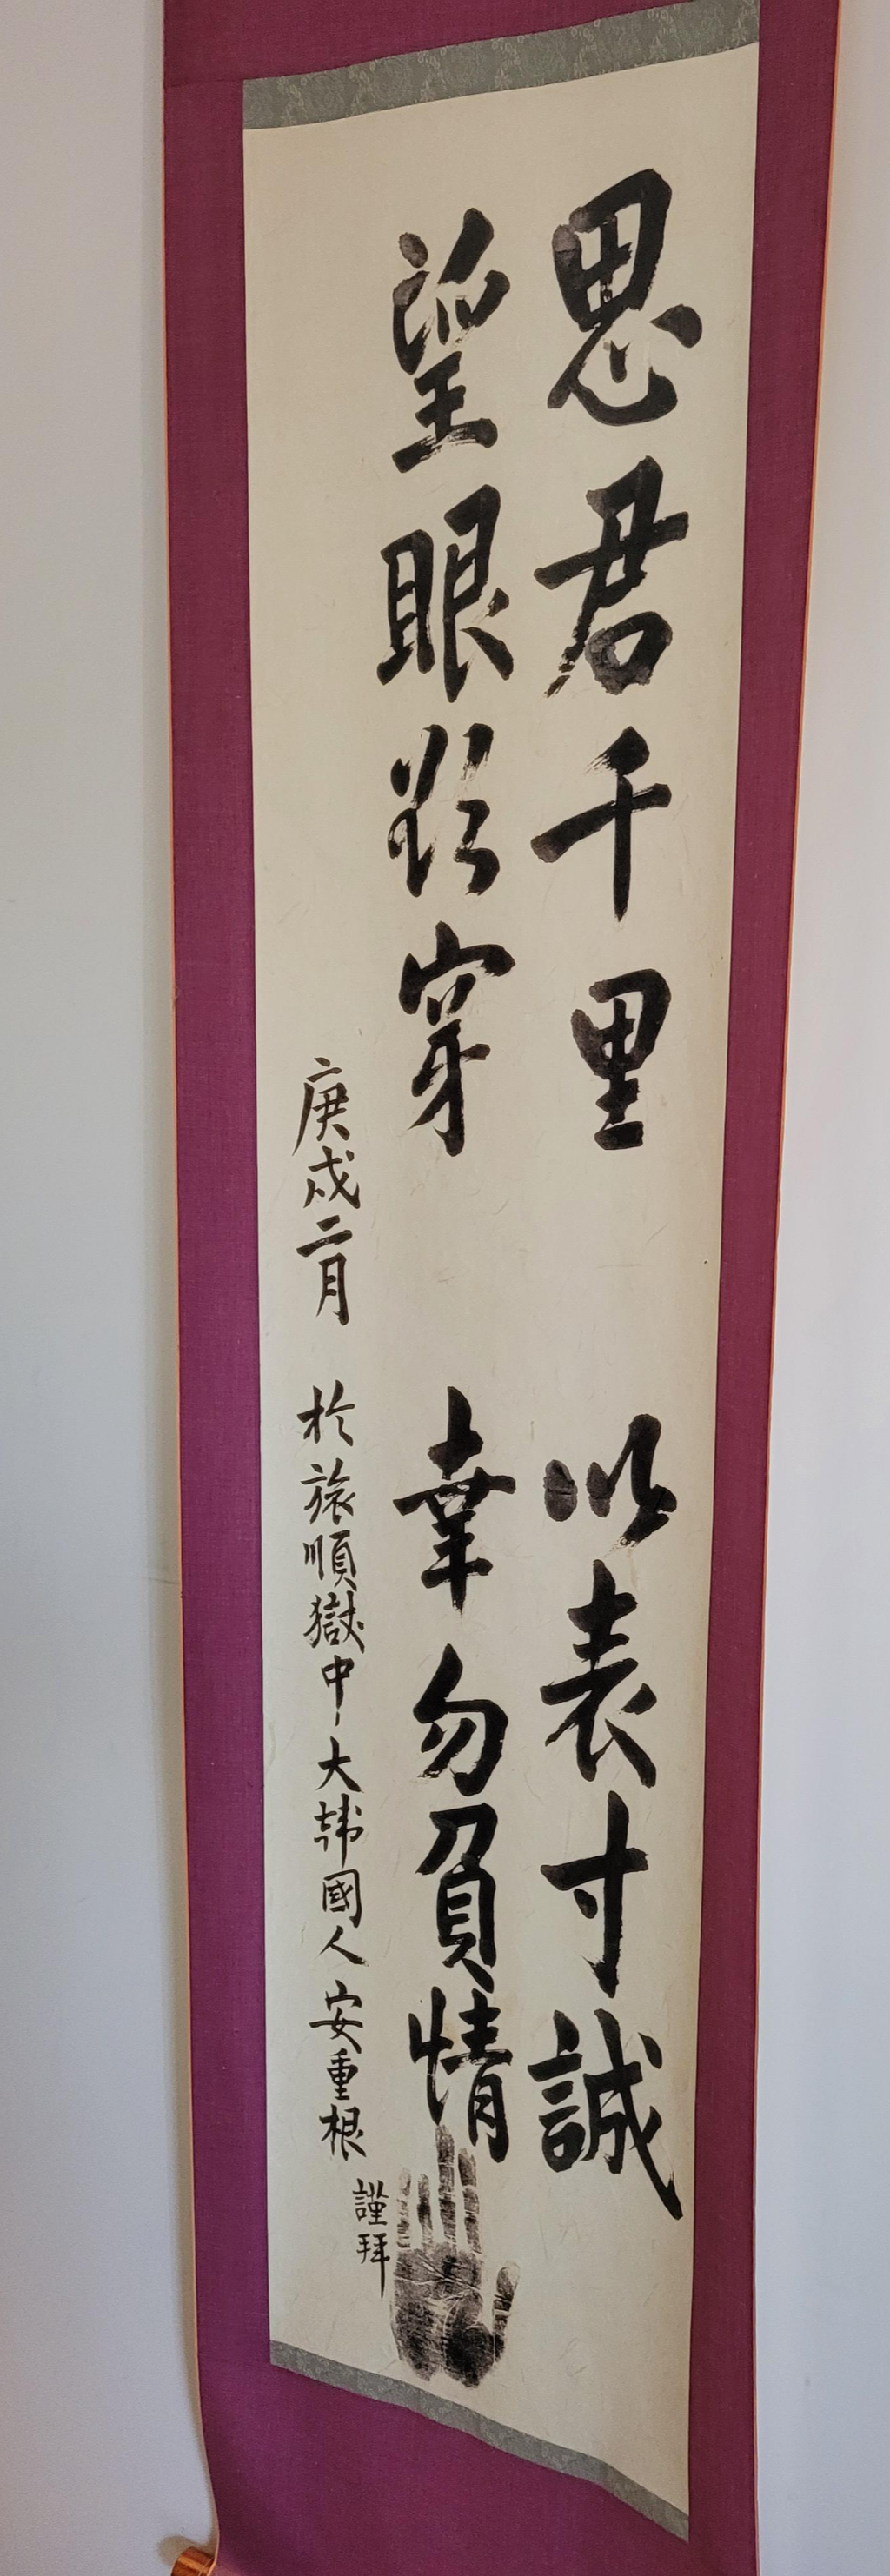 思君千里 以表寸誠
望眼欲穿 幸勿負情
庚戌二月 於旅順獄中 大韓國人 安重根
謹拜